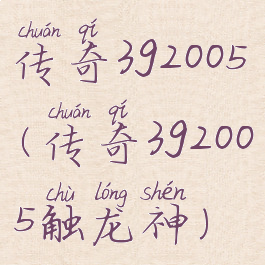 chuán qí
传奇392005
chuán qí
(传奇39200
chù lóng shén
5触龙神)